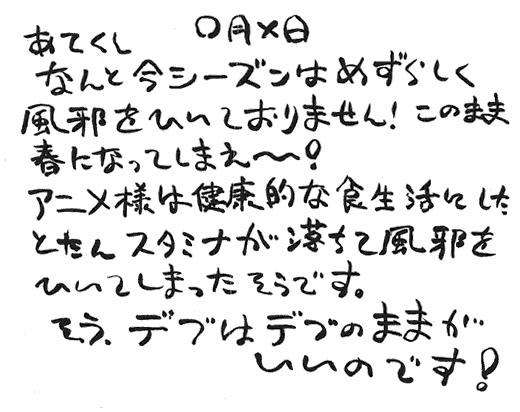 〇月×日
あてくし
なんと今シーズンはめずらしく
風邪をひいておりません！このまま
春になってしまえ〜！
アニメ様は健康的な食生活にした
とたんスタミナが落ちて風邪を
ひいてしまったそうです。
そう、デブはデブのままが
いいのです！